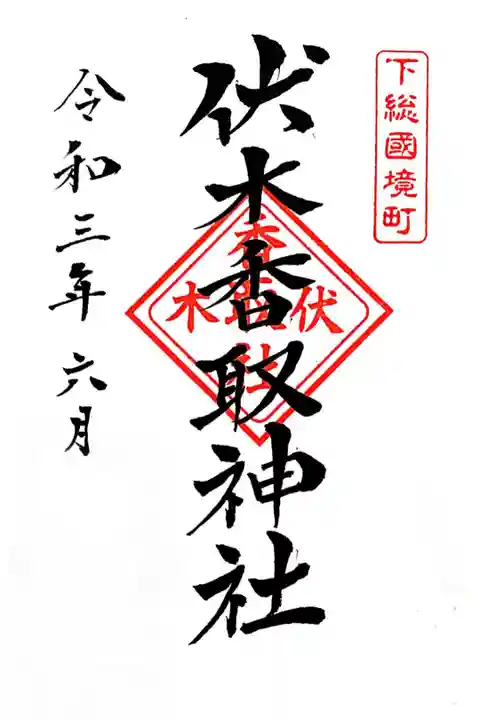 下総國境町
伏木香取神社
伏木
香取
社
令和三年六月